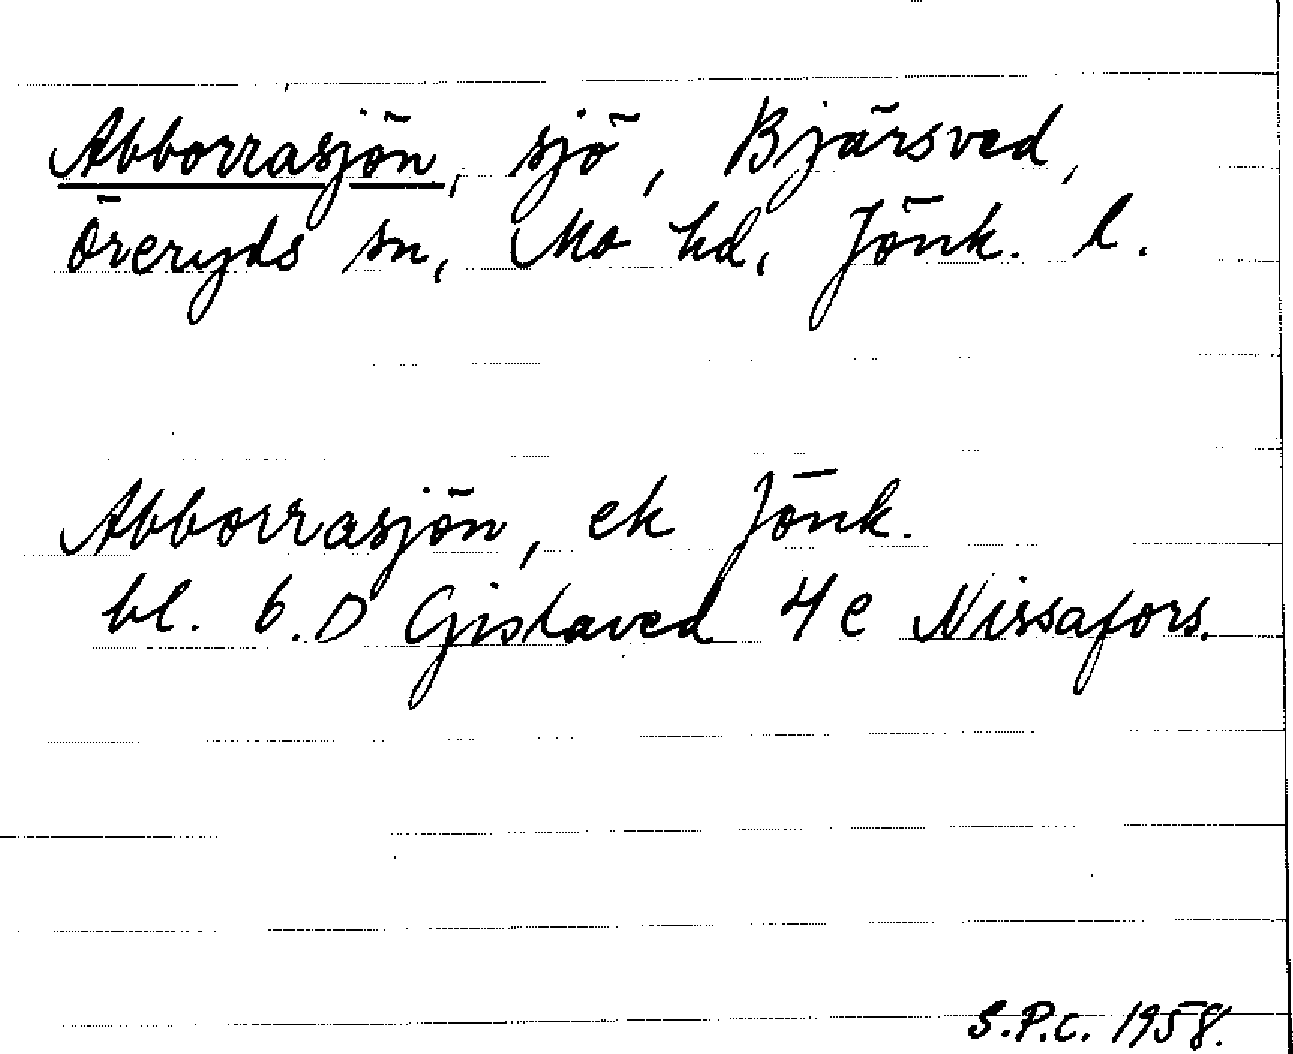 Abborrasjön, sjö, Bjärsved,
Öreryds sn, Mo hd, Jönk. l.
Abborrasjön, ek Jönk.
bl. 6.D Gislaved 4 e Nissafors.
S.P.C. 1958.